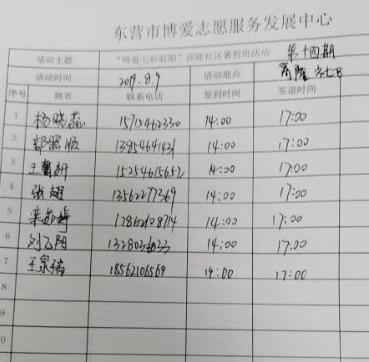 东营市博爱志愿服务发展中心
活动主题 "博爱七彩假期"商隆社区暑假班活动 第十四期
活动时间 2019.8.9 活动地点 商隆社区
序号 姓名 联系电话 签到时间 签退时间
1 杨晓蕊 15715462330 14:00 17:00
2 14:00 17:00
3 王馨妍 15254615652 14:00 17:00
4 张翅 13562277369 14:00 17:00
5 14:00 17:00
6 刘乙阳 14:00 17:00
7 王泉锡 18562106569 14:00 17:00